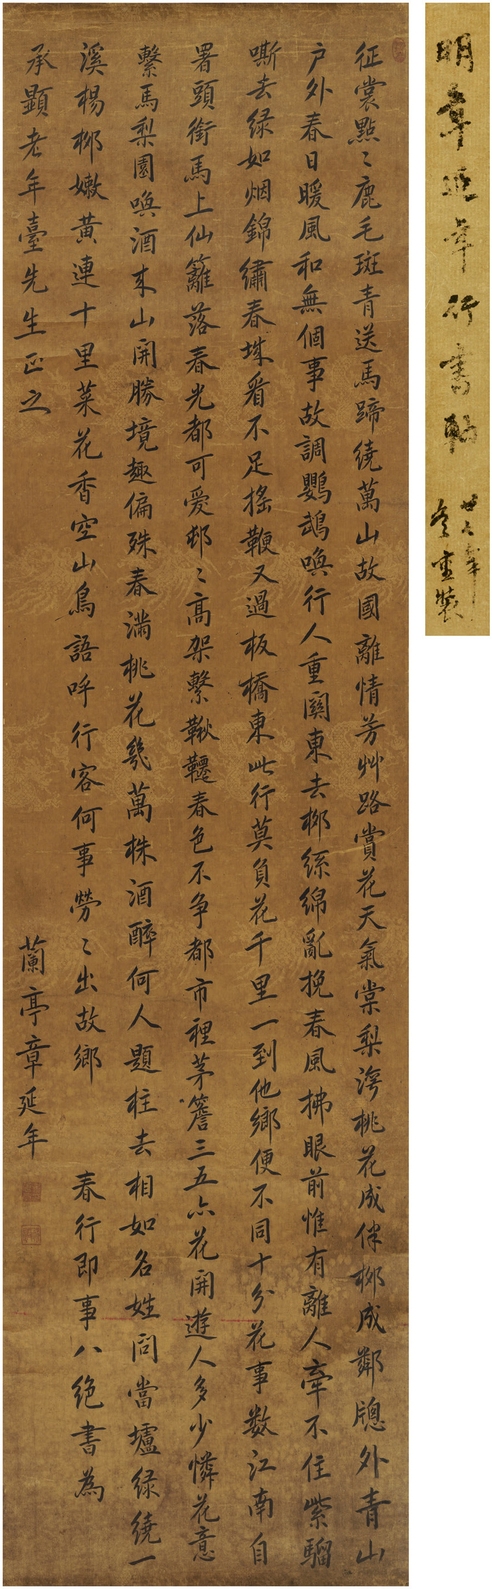 明章延年行書軸
廿七年
冬重裝
征裳點〻鹿毛斑青送馬蹄繞萬山故國離情芳艸路賞花天氣棠梨灣桃花成伴栁成鄰牕外青山
户外春日暖風和無個事故調鸚鵡喚行人重關東去栁絲綿亂挽春風拂眼前惟有離人牽不住紫騮
嘶去緑如烟錦繡春堆看不足搖鞭又過板橋東此行莫負花千里一到他鄉便不同十分花事数江南自
署頭銜馬上仙籬落春光都可爱邨〻高架繫鞦韆春色不争都市裡茅簷三五六花開遊人多少憐花意
繫馬梨園喚酒来山開勝境趣偏殊春滿桃花幾萬株酒醉何人題柱去相如名姓问當壚緑繞一
溪楊栁嫩黄連十里菜花香空山鳥語呼行客何事勞〻出故鄉 春行即事八绝書為
承顕老年臺先生正之 蘭亭章延年